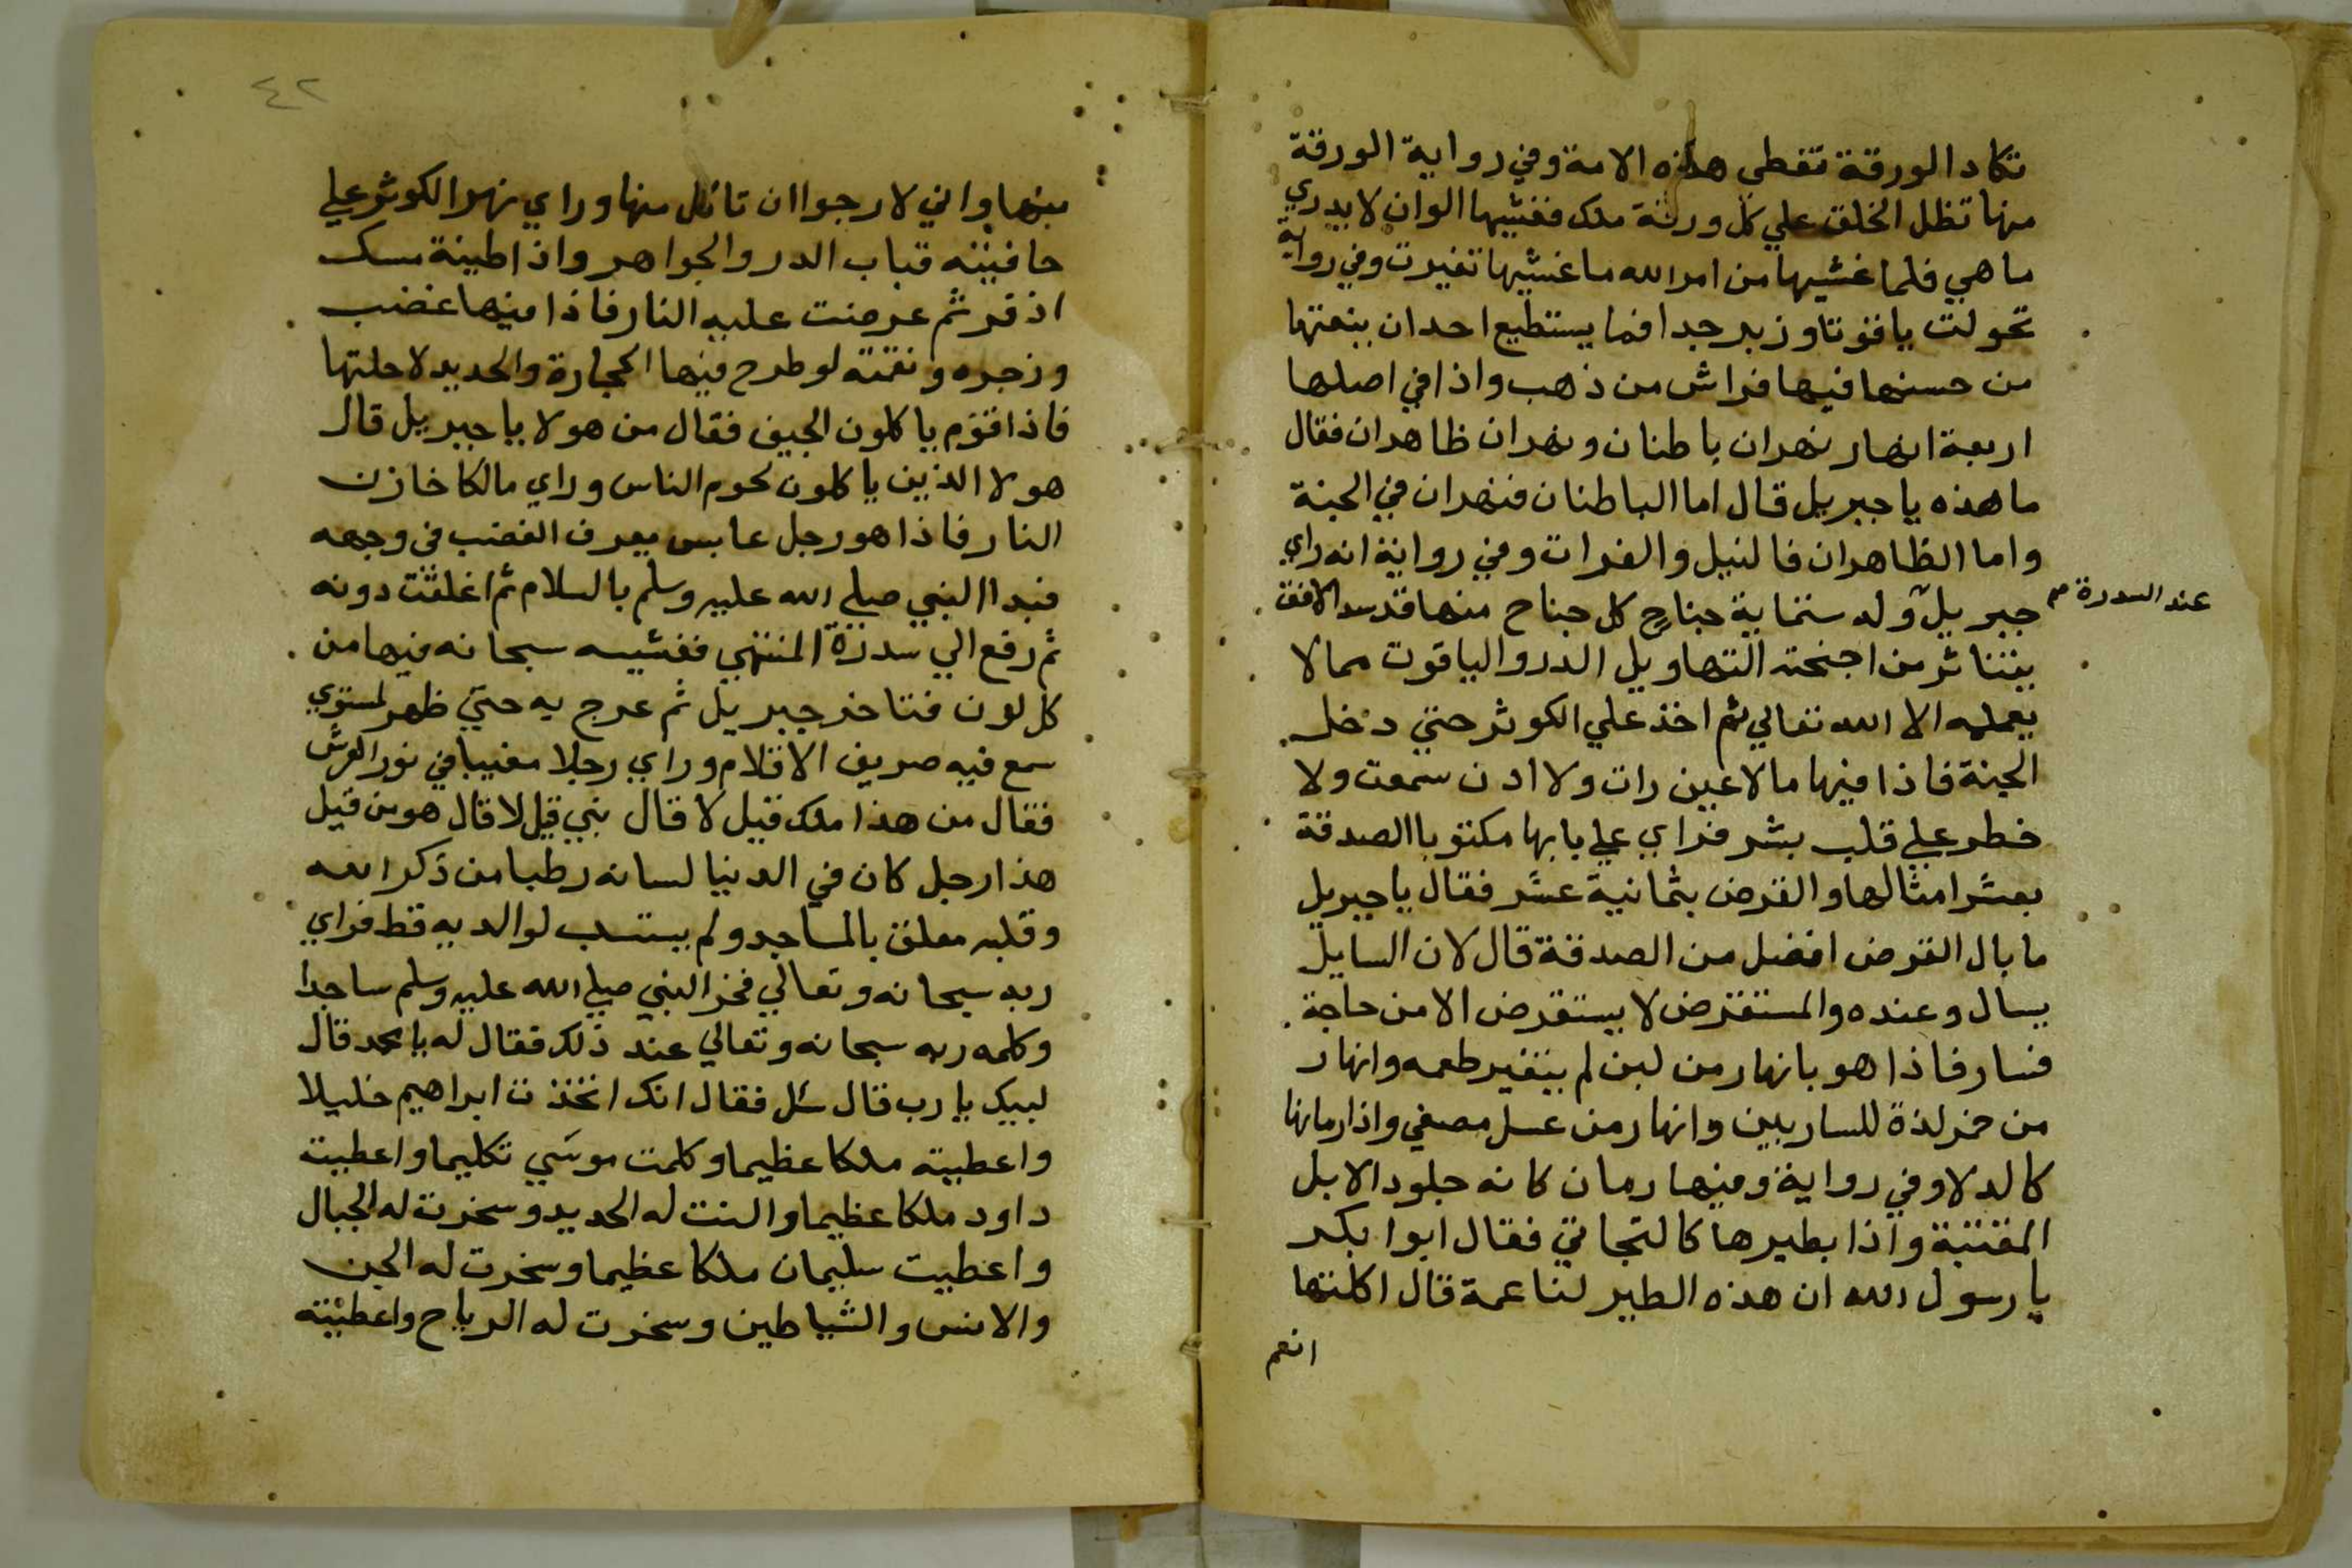 تكاد الورقة تغطي هذه الامة وفي رواية الورقة
منها تظل الخلق علي كل ورقة ملك فغشيها الوان لا يدري
ما هي فلما غشيها من امر الله ما غشيها تغيرت وفي رواية
تحولت ياقوتا وزبرجدا فما يستطيع احد ان ينعتها
من حسنها فيها فراش من ذهب واذا في اصلها
اربعة انهار نهران باطنان ونهران ظاهران فقال
ما هذه يا جبريل قال اما الباطنان فنهران في الجنة
واما الظاهران فالنيل والفرات وفي رواية انه راي
جبريل وله ستماية جناح كل جناح منها قد سد الافق
عند السدرة
يتناثر من اجنحته التهاويل الدر والياقوت مما لا
يعمله الا الله تعالي ثم اخذ علي الكوثر حتي دخل
الجنة فاذا فيها ما لا عين رات ولا اذن سمعت ولا
خطر علي قلب بشر فراي علي بابها مكتوبا الصدقة
بعشر امثالها والقرض بثمانية عشر فقال يا جبريل
ما بال القرض افضل من الصدقة قال لان السايل
يسال وعنده والمستقرض لا يستقرض الا من حاجة
فسار فاذا هو بانهار من لبن لم يتغير طعمه وانهار
من خمر لذة للساربين وانهار من عسل مصفي واذا رمانها
كالدلا وفي رواية وفيها رمان كانه جلود الابل
المقتبة واذا بطيرها كالبخاتي فقال ابوا بكر
يا رسول الله ان هذه الطير لناعمة قال اكلتها
انعم
٤٢
منها واني لارجوا ان تاكل منها وراي نهر الكوثر علي
حافيته قباب الدر والجواهر واذا طينة مسك
اذفر ثم عرضت عليه النار فاذا فيها غضب
وزجره ونقمته لو طرح فيها الحجارة والحديد لاحلتها
فاذا قوم ياكلون الجيف فقال من هولا يا جبريل قال
هولا الذين ياكلون لحوم الناس وراي مالكا خازن
النار فاذا هو رجل عابس يعرف الغضب في وجهه
فبدا النبي صلي الله عليه وسلم بالسلام ثم اغلقت دونه
ثم رفع الي سدرة المنتهي فغشيه سبحانه فيها من
كل لون فتاخر جبريل ثم عرج به حتي ظهر لمستوي
سمع فيه صريف الاقلام وراي رجلا مغيبا في نور العرش
فقال من هذا ملك قيل لا قال نبي قيل لا قال هو من قيل
هذا رجل كان في الدنيا لسانه رطبا من ذكر الله
وقلبه معلق بالمساجد ولم يستسب لوالديه قط فراي
ربه سبحانه وتعالي فخر النبي صلي الله عليه وسلم ساجدا
وكلمه ربه سبحانه وتعالي عند ذلك فقال له يا محمد قال
لبيك يا رب قال سل فقال انك اتخذت ابراهيم خليلا
واعطيته ملكا عظيما وكلمت موسي تكليما واعطيت
داود ملكا عظيما والنت له الحديد وسخرت له الجبال
واعطيت سليمان ملكا عظيما وسخرت له الجن
والانس والشياطين وسخرت له الرياح واعطيته